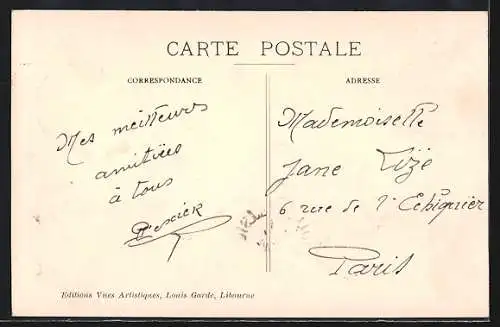 CARTE POSTALE
CORRESPONDANCE
Mes meilleurs
amitiées
à tous
ADRESSE
Mademoiselle
Jane Lizé
6 rue de l'Echiquier
Paris
Editions Vues Artistiques, Louis Garde, Libourne